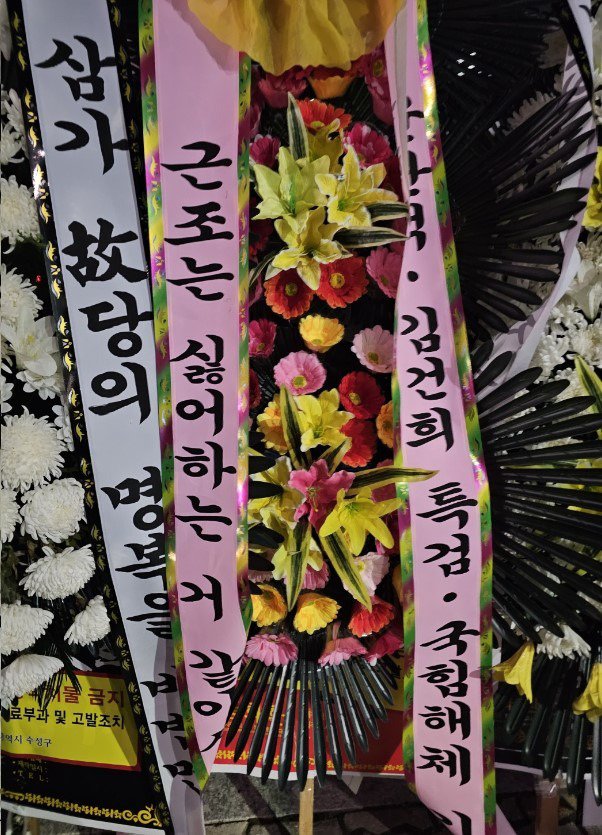 삼가 故당의 명복을
근조는 싫어하는 거 같아
· 김건희 특검 · 국힘해체
물 금지
료부과 및 고발조치
수성구